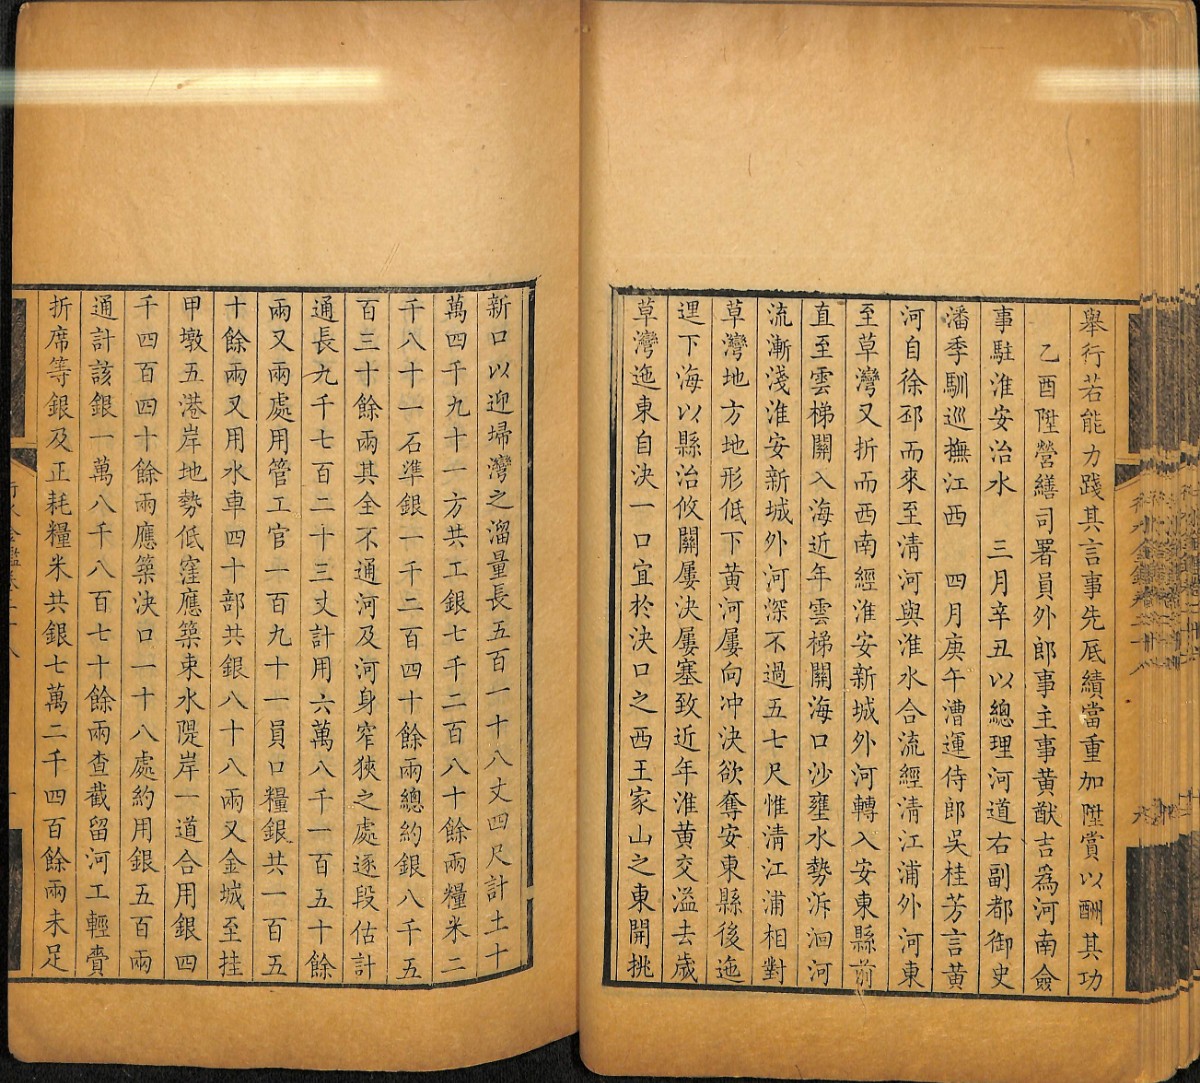 舉行若能力踐其言事先底績當重加陞賞以酬其功
乙酉陞營繕司署員外郎事主事黃猷吉爲河南僉
事駐淮安治水　三月辛丑以總理河道右副都御史
潘季馴巡撫江西　四月庚午漕運侍郎吳桂芳言黃
河自徐邳而來至清河與淮水合流經清江浦外河東
至草灣又折而西南經淮安新城外河轉入安東縣前
直至雲梯關入海近年雲梯關海口沙壅水勢泝洄河
流漸淺淮安新城外河深不過五七尺惟清江浦相對
草灣地方地形低下黃河屢向冲決欲奪安東縣後迤
逕下海以縣治攸關屢決屢塞致近年淮黃交溢去歲
草灣迤東自決一口宜於決口之西王家山之東開挑
新口以迎埽灣之溜量長五百一十八丈四尺計土十
萬四千九十一方共工銀七千二百八十餘兩糧米二
千八十一石準銀一千二百四十餘兩總約銀八千五
百三十餘兩其全不通河及河身窄狹之處逐段估計
通長九千七百二十三丈計用六萬八千一百五十餘
兩又兩處用管工官一百九十一員口糧銀共一百五
十餘兩又用水車四十部共銀八十八兩又金城至挂
甲墩五港岸地勢低窪應築束水隄岸一道合用銀四
千四百四十餘兩應築決口一十八處約用銀五百兩
通計該銀一萬八千八百七十餘兩查截留河工輕賫
折席等銀及正耗糧米共銀七萬二千四百餘兩未足